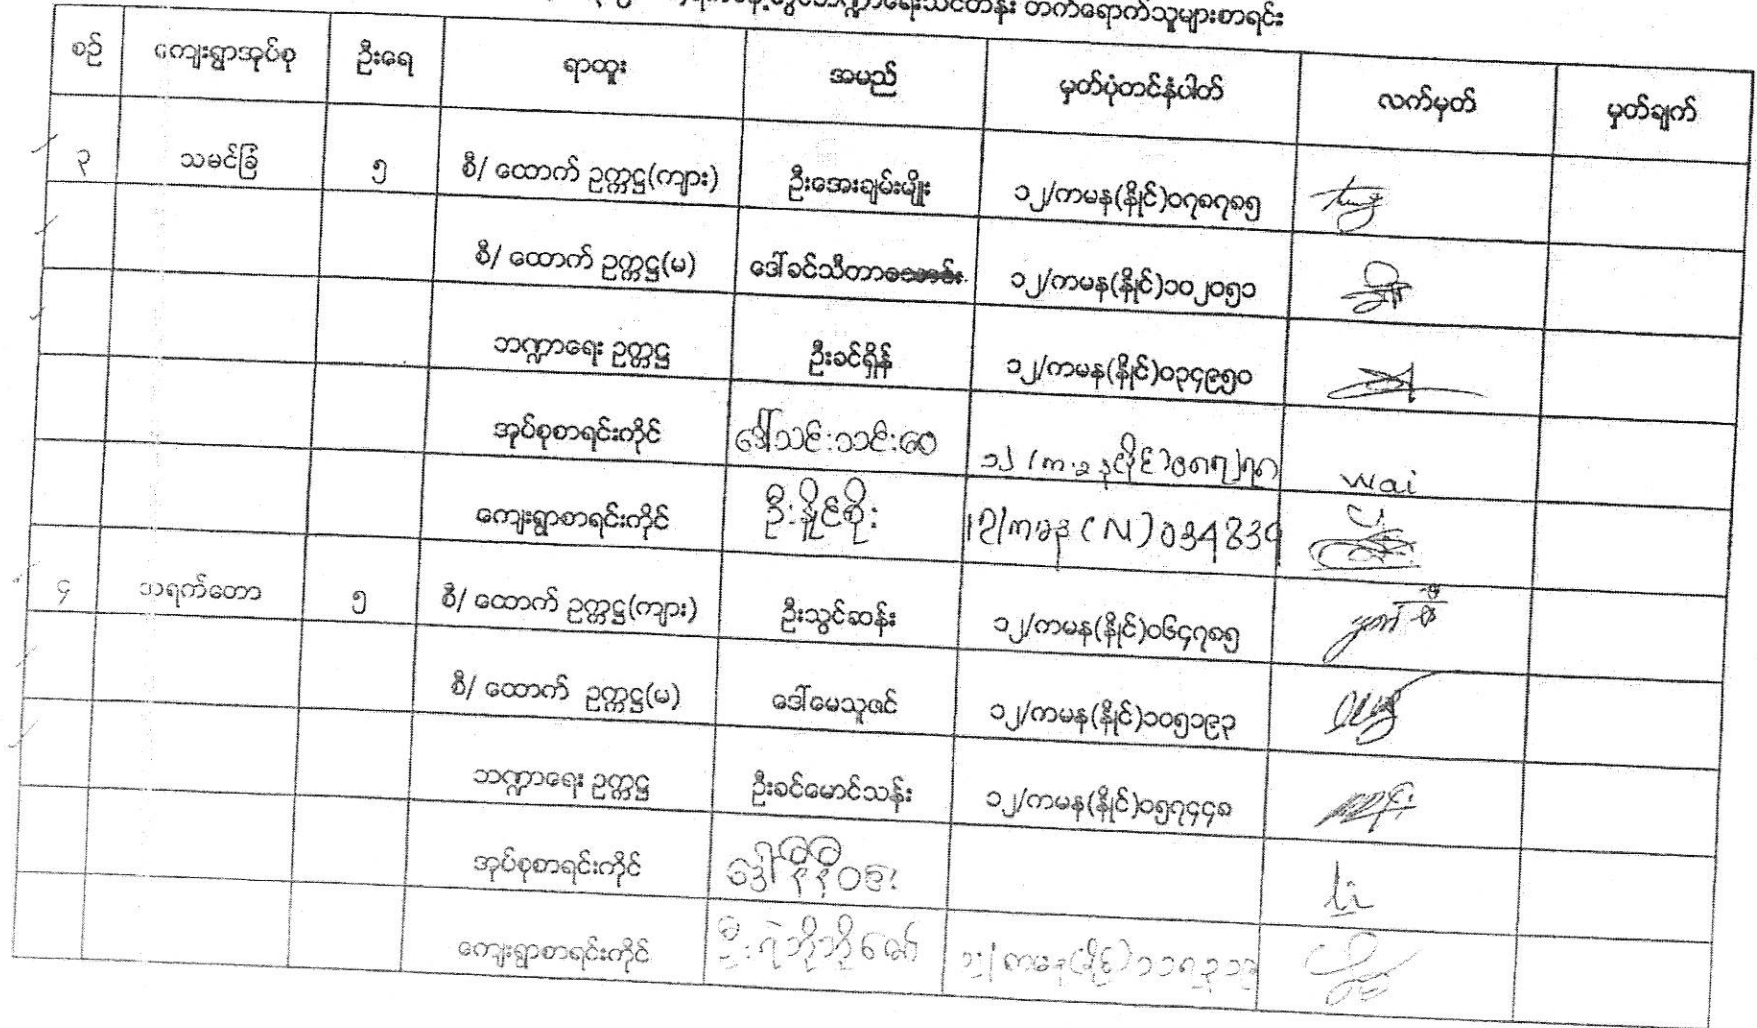 ဘဏ္ဍာရေးသင်တန်း တက်ရောက်သူများစာရင်း
စဉ် ကျေးရွာအုပ်စု ဦးရေ ရာထူး အမည် မှတ်ပုံတင်နံပါတ် လက်မှတ် မှတ်ချက်
၃ သမင်ခြံ ၅ စီ/ ထောက် ဥက္ကဋ္ဌ(ကျား) ဦးအေးချမ်းမျိုး ၁၂/ကမန(နိုင်)၀၇၈၇၈၅
စီ/ ထောက် ဥက္ကဋ္ဌ(မ) ဒေါ်ခင်သီတာ ၁၂/ကမန(နိုင်)၁၀၂၀၅၁
ဘဏ္ဍာရေး ဥက္ကဋ္ဌ ဦးခင်ရှိန် ၁၂/ကမန(နိုင်)၀၃၄၉၅၀
အုပ်စုစာရင်းကိုင် ဒေါ်သင်းသင်းဝေ wai
ကျေးရွာစာရင်းကိုင် ဦးနိုင်စိုး 12/ကမန(N)034339
၄ ဘရက်တော ၅ စီ/ ထောက် ဥက္ကဋ္ဌ(ကျား) ဦးသွင်ဆန်း ၁၂/ကမန(နိုင်)၀၆၄၇၈၅
စီ/ ထောက် ဥက္ကဋ္ဌ(မ) ဒေါ်မေသူဇင် ၁၂/ကမန(နိုင်)၁၀၅၁၉၃
ဘဏ္ဍာရေး ဥက္ကဋ္ဌ ဦးခင်မောင်သန်း ၁၂/ကမန(နိုင်)၀၅၇၄၄၈
အုပ်စုစာရင်းကိုင် ဒေါ်နီနီဝင်း li
ကျေးရွာစာရင်းကိုင် ဦးရဲဘိုဘိုဇော်